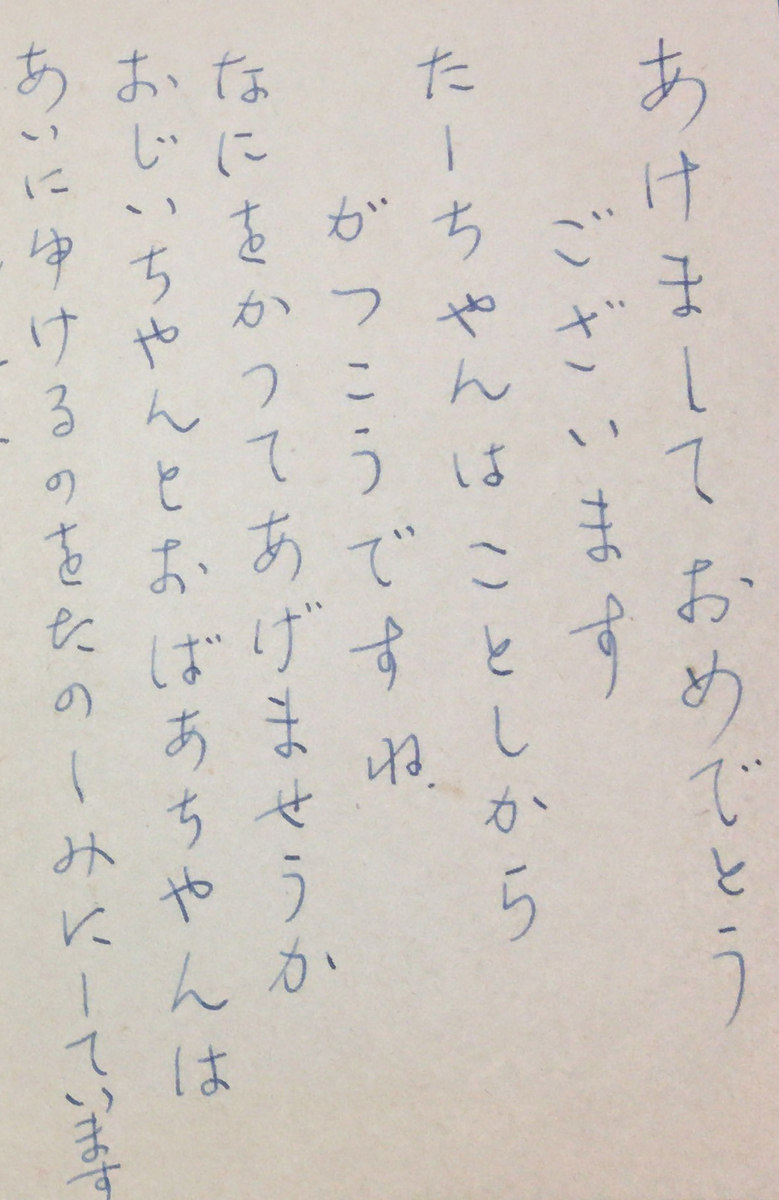 あけましておめでとう
ございます
たーちやんはことしから
がつこうですね
なにをかつてあげませうか
おじいちやんとおばあちやんは
あいにゆけるのをたのしみにしています